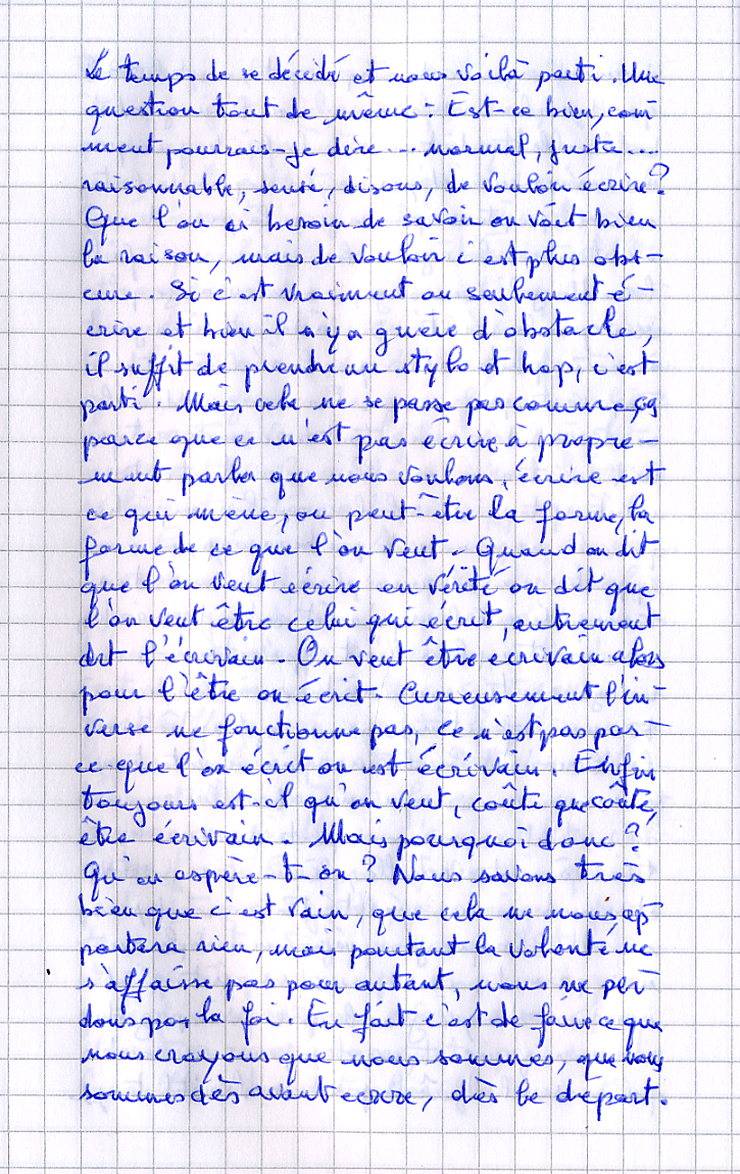 Le temps de se décidé et nous voilà parti. Une
question tout de même : Est-ce bien, com-
ment pourrais-je dire... normal, juste....
raisonnable, sensé, disons, de vouloir écrire?
Que l'on ai besoin de savoir on voit bien
la raison, mais de vouloir c'est plus obs-
cure. Si c'est vraiment ou seulement é-
crire et bien il n'y a guère d'obstacle,
il suffit de prendre un stylo et hop, c'est
parti. Mais cela ne se passe pas comme ça
parce que ce n'est pas écrire à propre-
ment parler que nous voulons, écrire est
ce qui mène, ou peut-être la forme, la
forme de ce que l'on veut. Quand on dit
que l'on veut écrire en vérité on dit que
l'on veut être celui qui écrit, autrement
dit l'écrivain. On veut être écrivain alors
pour l'être on écrit. Curieusement l'in-
verse ne fonctionne pas, ce n'est pas par-
ce que l'on écrit on est écrivain. Enfin
toujours est-il qu'on veut, coûte que coûte,
être écrivain. Mais pourquoi donc ?
Qu'en espère-t-on ? Nous savons très
bien que c'est vain, que cela ne nous ap-
portera rien, mais pourtant la volonté ne
s'affaisse pas pour autant, nous ne per-
dons pas la foi. En fait c'est de faire ce que
nous croyons que nous sommes, que nous
sommes dès avant écrire, dès le départ.